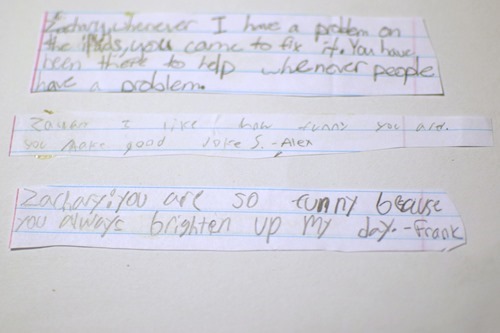 Zachary, whenever I have a problem on
the ipads, you came to fix it. You have
been there to help whenever people
have a problem.
I like how funny you are.
you make good Joke S. -Alex
Zachary, you are so funny because
you always brighten up my day. -Frank